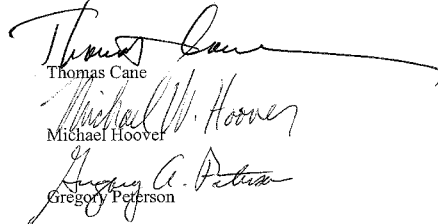 Thomas Cane
Thomas Cane
Michael W. Hoover
Michael Hoover
Gregory A. Peterson
Gregory Peterson